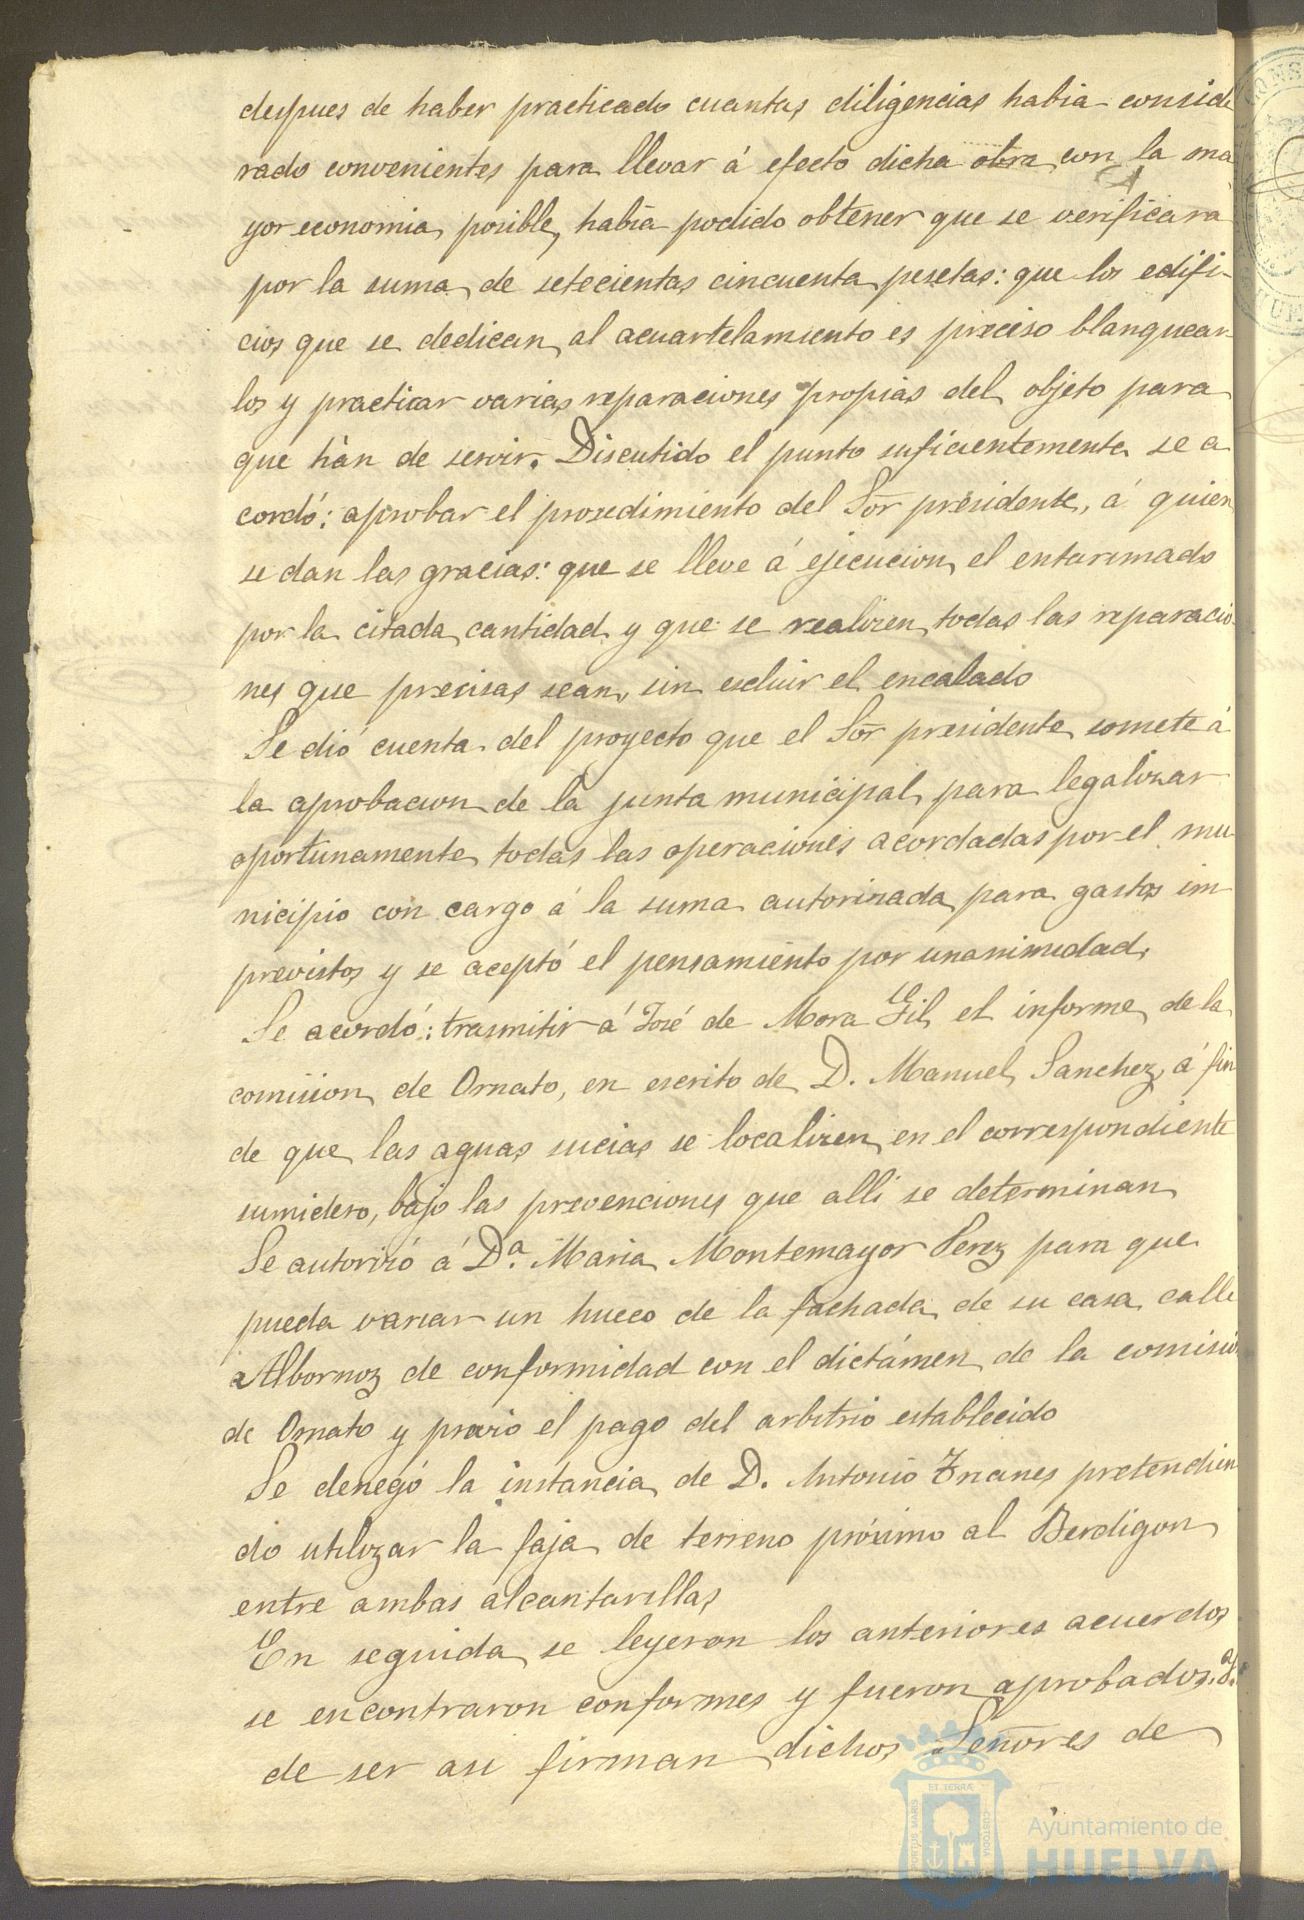 despues de haber practicado cuantas diligencias habia conside
rado convenientes para llevar á efecto dicha obra con la ma
yor economia posible, habia podido obtener que se verificara
por la suma de setecientas cincuenta pesetas: que los edifi-
cios que se dedican al acuartelamiento es preciso blanquear-
los y practicar varias reparaciones propias del objeto para
que hán de servir. Discutido el punto suficientemente se a
cordó: aprobar el prosedimiento del Sor presidente, á quien
se dan las gracias: que se lleve á ejecucion el entarimado
por la citada cantidad y que se realizen todas las reparacio-
nes que precisas sean, sin escluir el encalado
Se dió cuenta del proyecto que el Sor presidente somete á
la aprobacion de la junta municipal para legalizar
oportunamente todas las operaciones acordadas por el mu-
nicipio con cargo á la suma autorizada para gastos im-
previstos y se aceptó el pensamiento por unanimidad.
Se acordó: trasmitir á José de Mora Gil el informe de la
comision de Ornato, en escrito de D. Manuel Sanchez, á fin
de que las aguas sucias se localizen en el correspondiente
sumidero, bajo las prevenciones que alli se determinan
Se autorizó á Da. Maria Montemayor Perez para que
pueda variar un hueco de la fachada de su casa calle
Albornoz de conformidad con el dictámen de la comisió
de Ornato y previo el pago del arbitrio establecido
Se denegó la instancia de D. Antonio pretendien
do utilizar la faja de terreno próximo al Berdigon
entre ambas alcantarillas
En seguida se leyeron los anteriores acuerdos
se encontraron conformes y fueron aprobados.
de ser asi firman dichos Señores de
PORTUS MARIS ET TERRÆ CUSTODIA
Ayuntamiento de
HUELVA